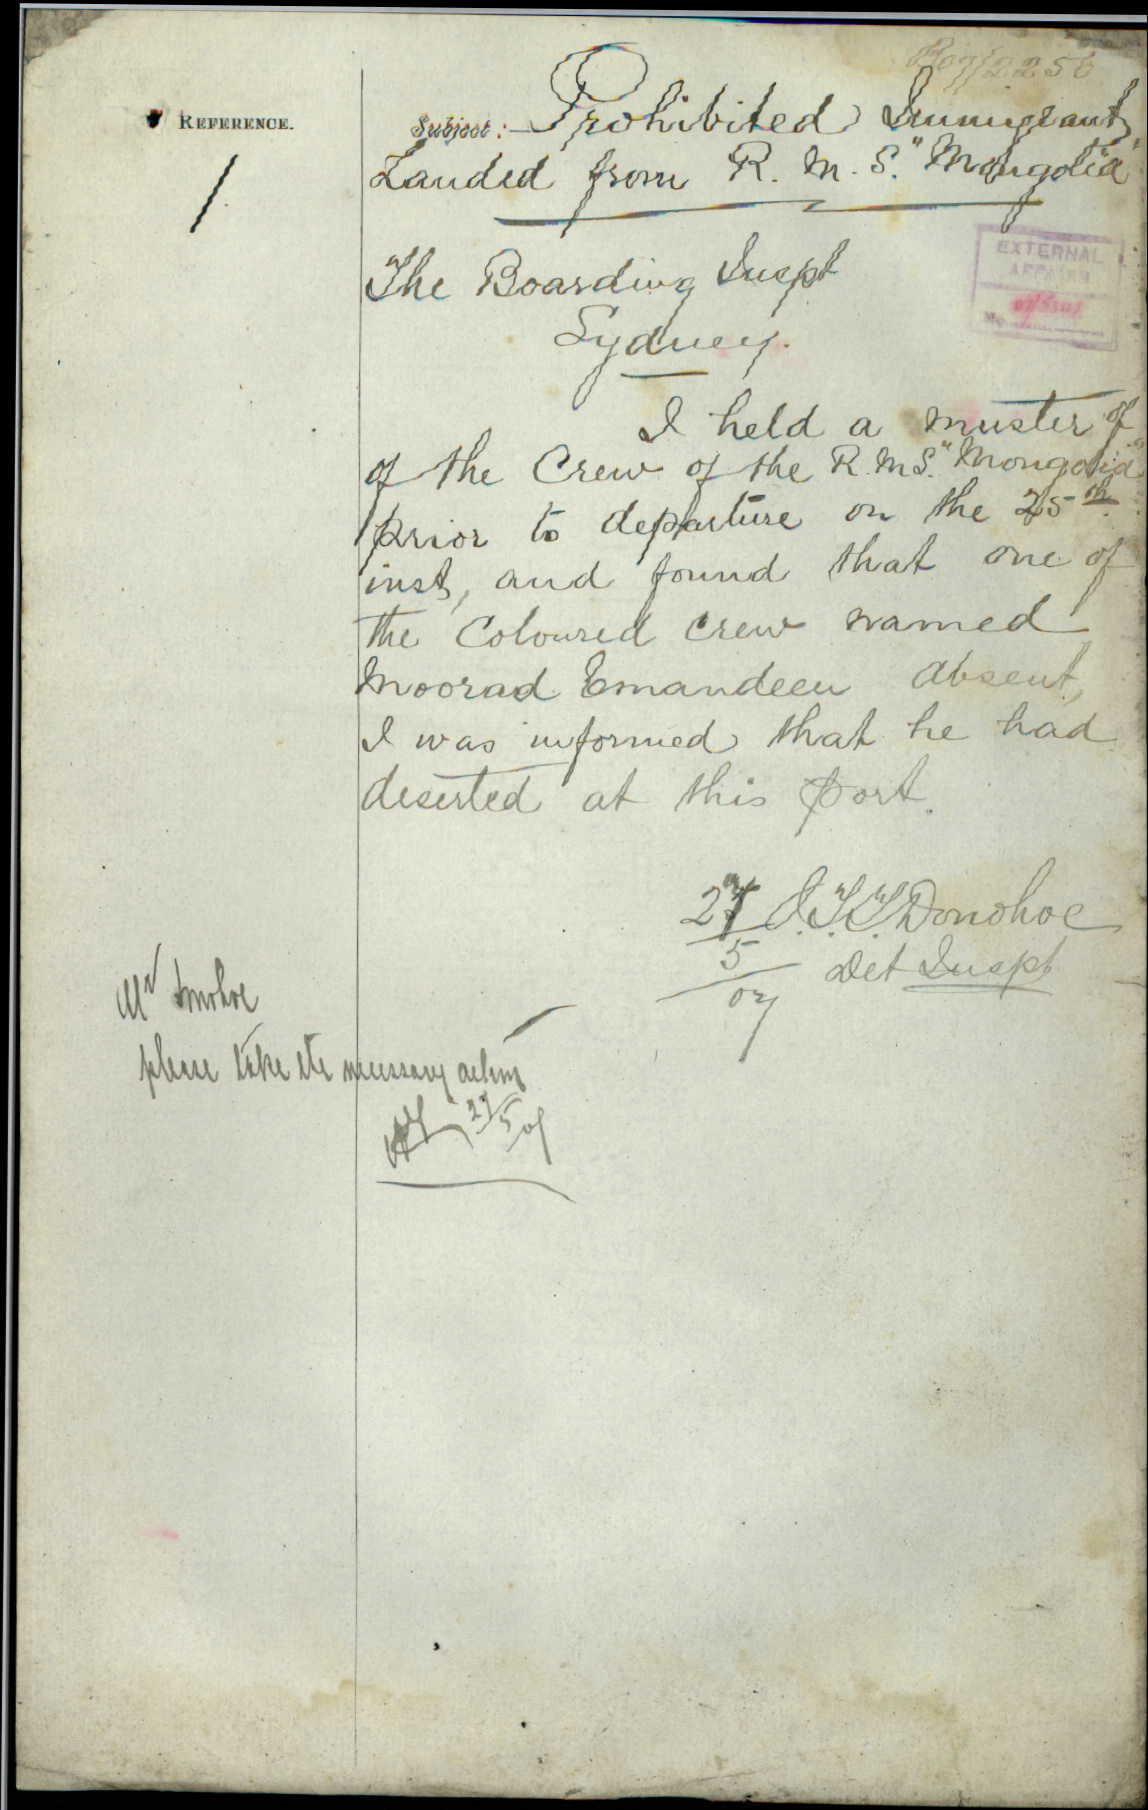 REFERENCE.
Subject: Prohibited Immigrant
Landed from R. M. S. "Mongolia"
EXTERNAL
AFFAIRS
No
The Boarding Inspt
Sydney.
I held a muster of
of the Crew of the R.M.S. "Mongolia"
prior to departure on the 25th
inst, and found that one of
the Coloured crew named
Moorad Emandeen absent,
I was informed that he had
deserted at this port.
27 J.T.T. Donohoe
5 Det Inspt
07
Mr Donohoe
please take the necessary action
27/5/07